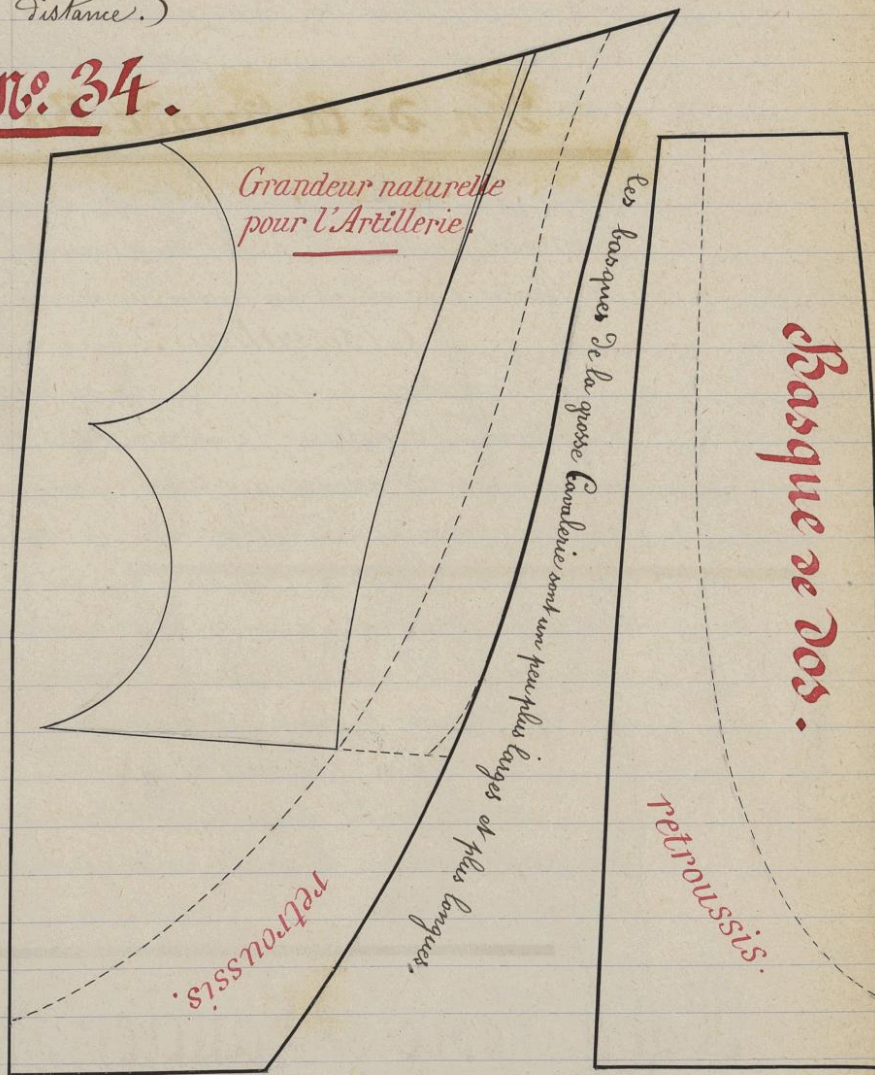 distance.)
No. 34.
Grandeur naturelle
pour l'Artillerie.
les basques de la grosse Cavalerie sont un peu plus larges et plus longues.
Basque de dos.
retroussis.
retroussis.